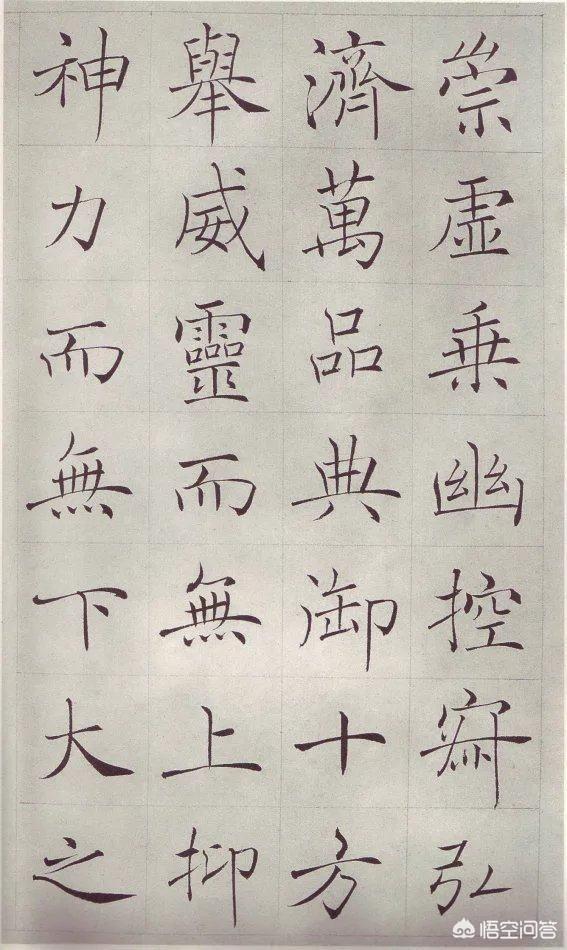 崇虛乗幽控寂弘
濟萬品典御十方
舉威靈而無上抑
神力而無下大之
悟空问答